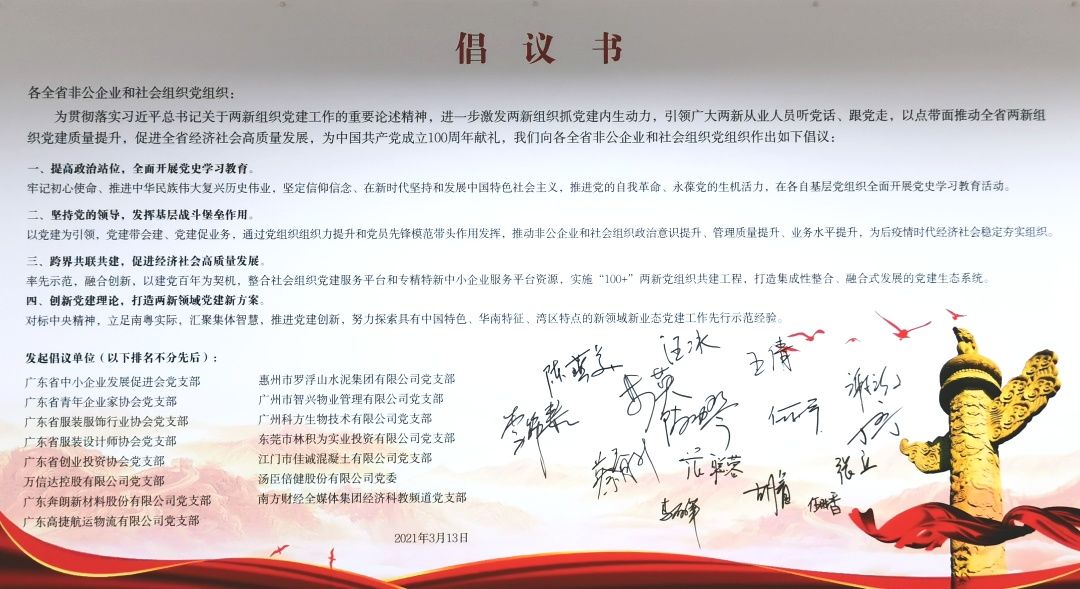 倡议书
各全省非公企业和社会组织党组织：
为贯彻落实习近平总书记关于两新组织党建工作的重要论述精神，进一步激发两新组织抓党建内生动力，引领广大两新从业人员听党话、跟党走，以点带面推动全省两新组
织党建质量提升，促进全省经济社会高质量发展，为中国共产党成立100周年献礼，我们向各全省非公企业和社会组织党组织作出如下倡议：
一、提高政治站位，全面开展党史学习教育。
牢记初心使命、推进中华民族伟大复兴历史伟业，坚定信仰信念、在新时代坚持和发展中国特色社会主义，推进党的自我革命、永葆党的生机活力，在各自基层党组织全面开展党史学习教育活动。
二、坚持党的领导，发挥基层战斗堡垒作用。
以党建为引领，党建带会建、党建促业务，通过党组织组织力提升和党员先锋模范带头作用发挥，推动非公企业和社会组织政治意识提升、管理质量提升、业务水平提升，为后疫情时代经济社会稳定夯实组织。
三、跨界共联共建，促进经济社会高质量发展。
率先示范，融合创新，以建党百年为契机，整合社会组织党建服务平台和专精特新中小企业服务平台资源，实施“100+”两新党组织共建工程，打造集成性整合、融合式发展的党建生态系统。
四、创新党建理论，打造两新领域党建新方案。
对标中央精神，立足南粤实际，汇聚集体智慧，推进党建创新，努力探索具有中国特色、华南特征、湾区特点的新领域新业态党建工作先行示范经验。
发起倡议单位（以下排名不分先后）：
广东省中小企业发展促进会党支部
广东省青年企业家协会党支部
广东省服装服饰行业协会党支部
广东省服装设计师协会党支部
广东省创业投资协会党支部
万信达控股有限公司党支部
广东奔朗新材料股份有限公司党支部
广东高捷航运物流有限公司党支部
惠州市罗浮山水泥集团有限公司党支部
广州市智兴物业管理有限公司党支部
广州科方生物技术有限公司党支部
东莞市林积为实业投资有限公司党支部
江门市佳诚混凝土有限公司党支部
汤臣倍健股份有限公司党委
南方财经全媒体集团经济科教频道党支部
2021年3月13日
汪冰
王倩
张立